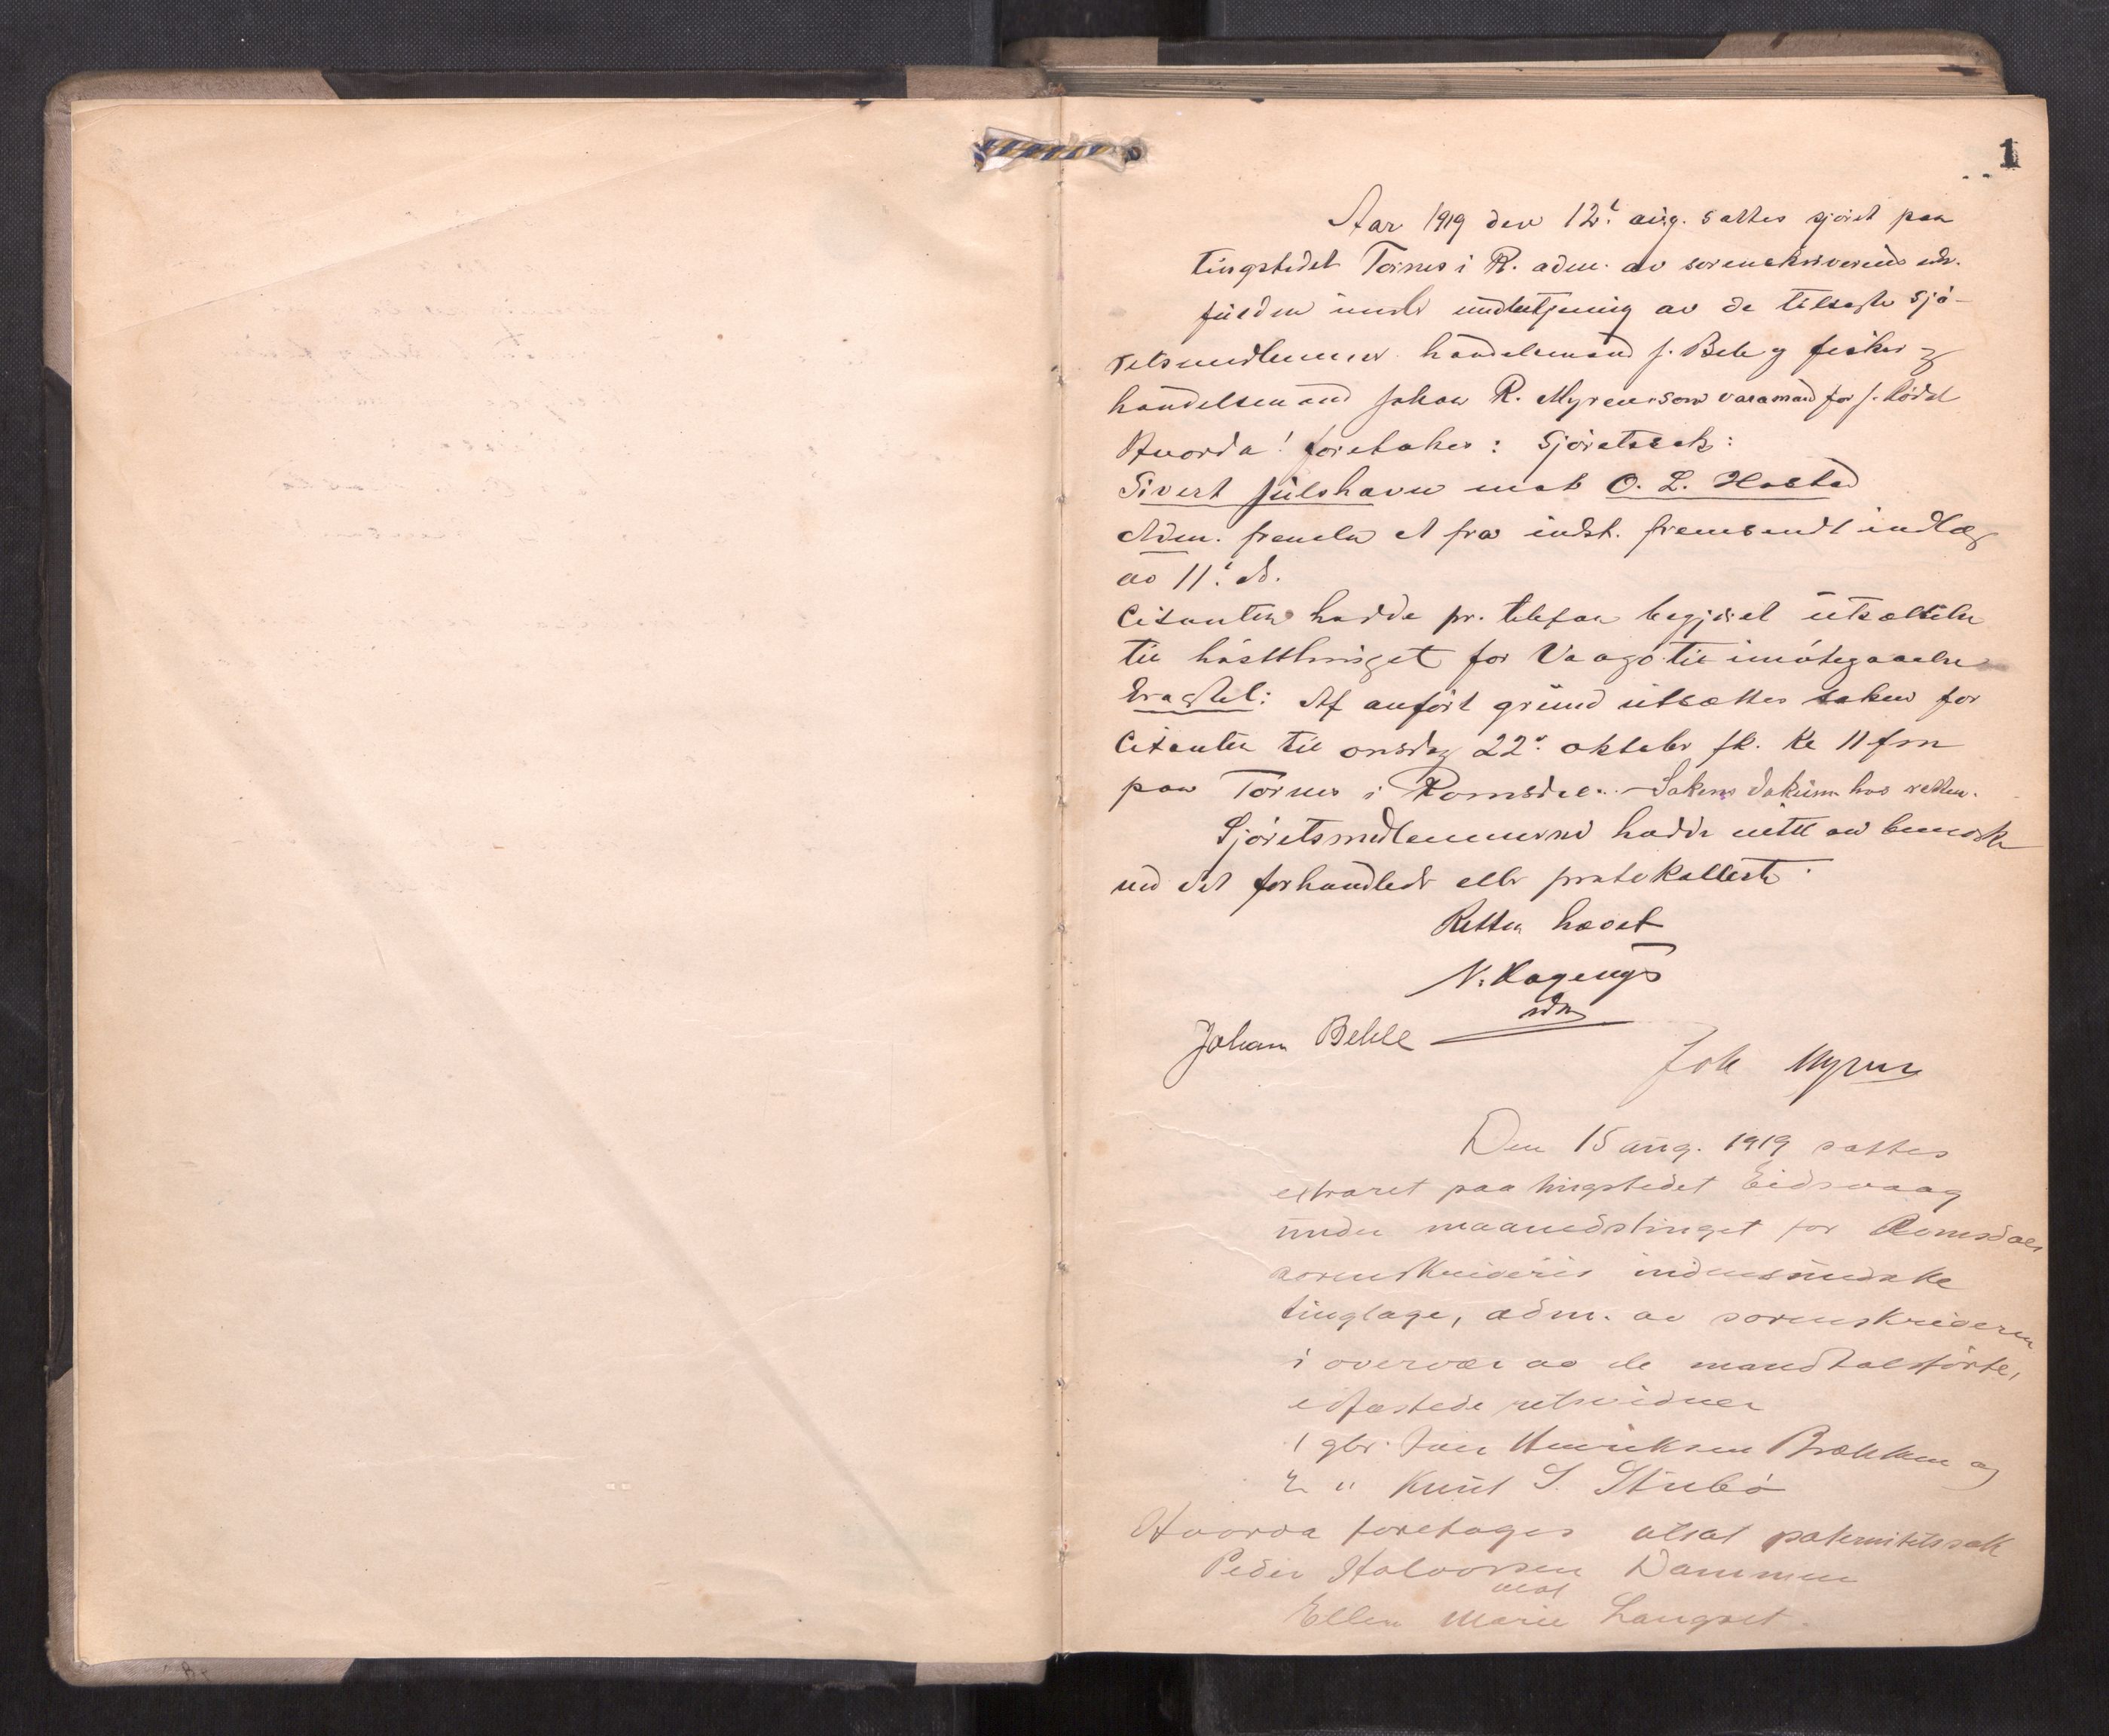 1
Aar 1919 den 12t aug. sattes sjøret paa
tingstedet Tornes i R. adm. av sorenskriverens
under av de tilsagte sjø-
retsmedlemmer handelsmand J. Bele og fisker og
handelsmand Johan R. Myren som varamand for J.
Hvorda! foretokes: Sjøretssak:
Sivert Julshavn mot O. L. Hostad
Adm. fremla et fra indst. fremsendt indlæg
av 11t ds.
Citanten hadde pr. telefon begjært utsættelse
til høsttinget for Vaagø til imøtegaaelse
Eragtet: Af anført grund utsættes saken for
Citanten til onsdag 22de oktober fk. kl 11 fm
paa Tornes i Romsdal. – Sakens dokum. hos retten.
Sjøretsmedlemmerne hadde intet at bemerke
ved det forhandlede eller protokollerte.
Retten hævet
N.
Johan Behle
Joh Myren
Den 15 aug. 1919 sattes
extraret paa tingstedet Eidsvaag
under maanedstinget for Romsdals
sorenskriveris indensundske
tinglage, adm. av sorenskriveren
i overvær av de mandtalsførte,
edfæstede retsvidner
1 gbr. Henriksen Brækken og
2 " Knut S. Stubø
Hvorda foretages utsat paternitetssak
Peder Halvorsen Dammen
mot
Ellen Marie Langset.